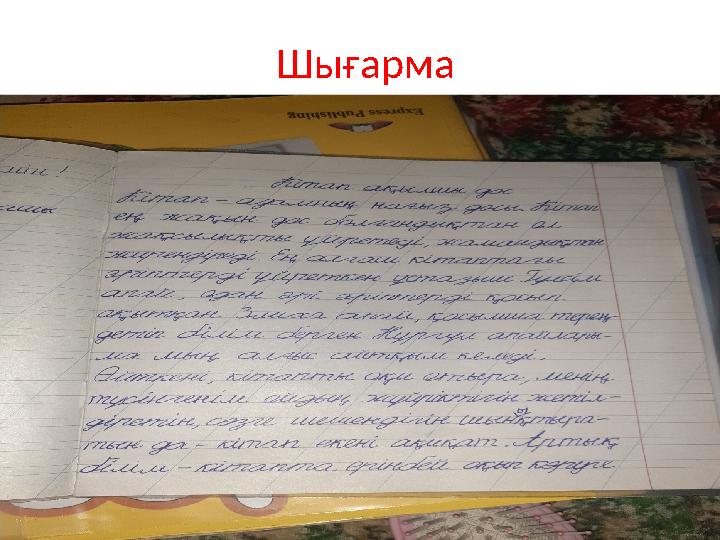 Шығарма
Express Publishing
лін!
Кітап ақылшы дос
Кітап – адамның нағыз досы. Кітап
ең жақын дос болғандықтан ол
жақсылықты үйретеді, жамандықтан
жирендіреді. Ең алғаш кітаптағы
әріптерді үйреткен ұстазым
апай, одан әрі әріптерді қосып
оқытқан Зылиха апай, қосымша терең-
детіп білім берген Нургүл апайлары-
ма мың алғыс айтқым келеді.
Өйткені, кітапты оқи отыра, менің
түсінгенім ойдың жүйріктігін жетіл-
діретін, сөзге шешендігін шыңқтыра-
ы
тын да - кітап екені ақиқат. Артық
білім – кітапта ерінбей оқып көруге.